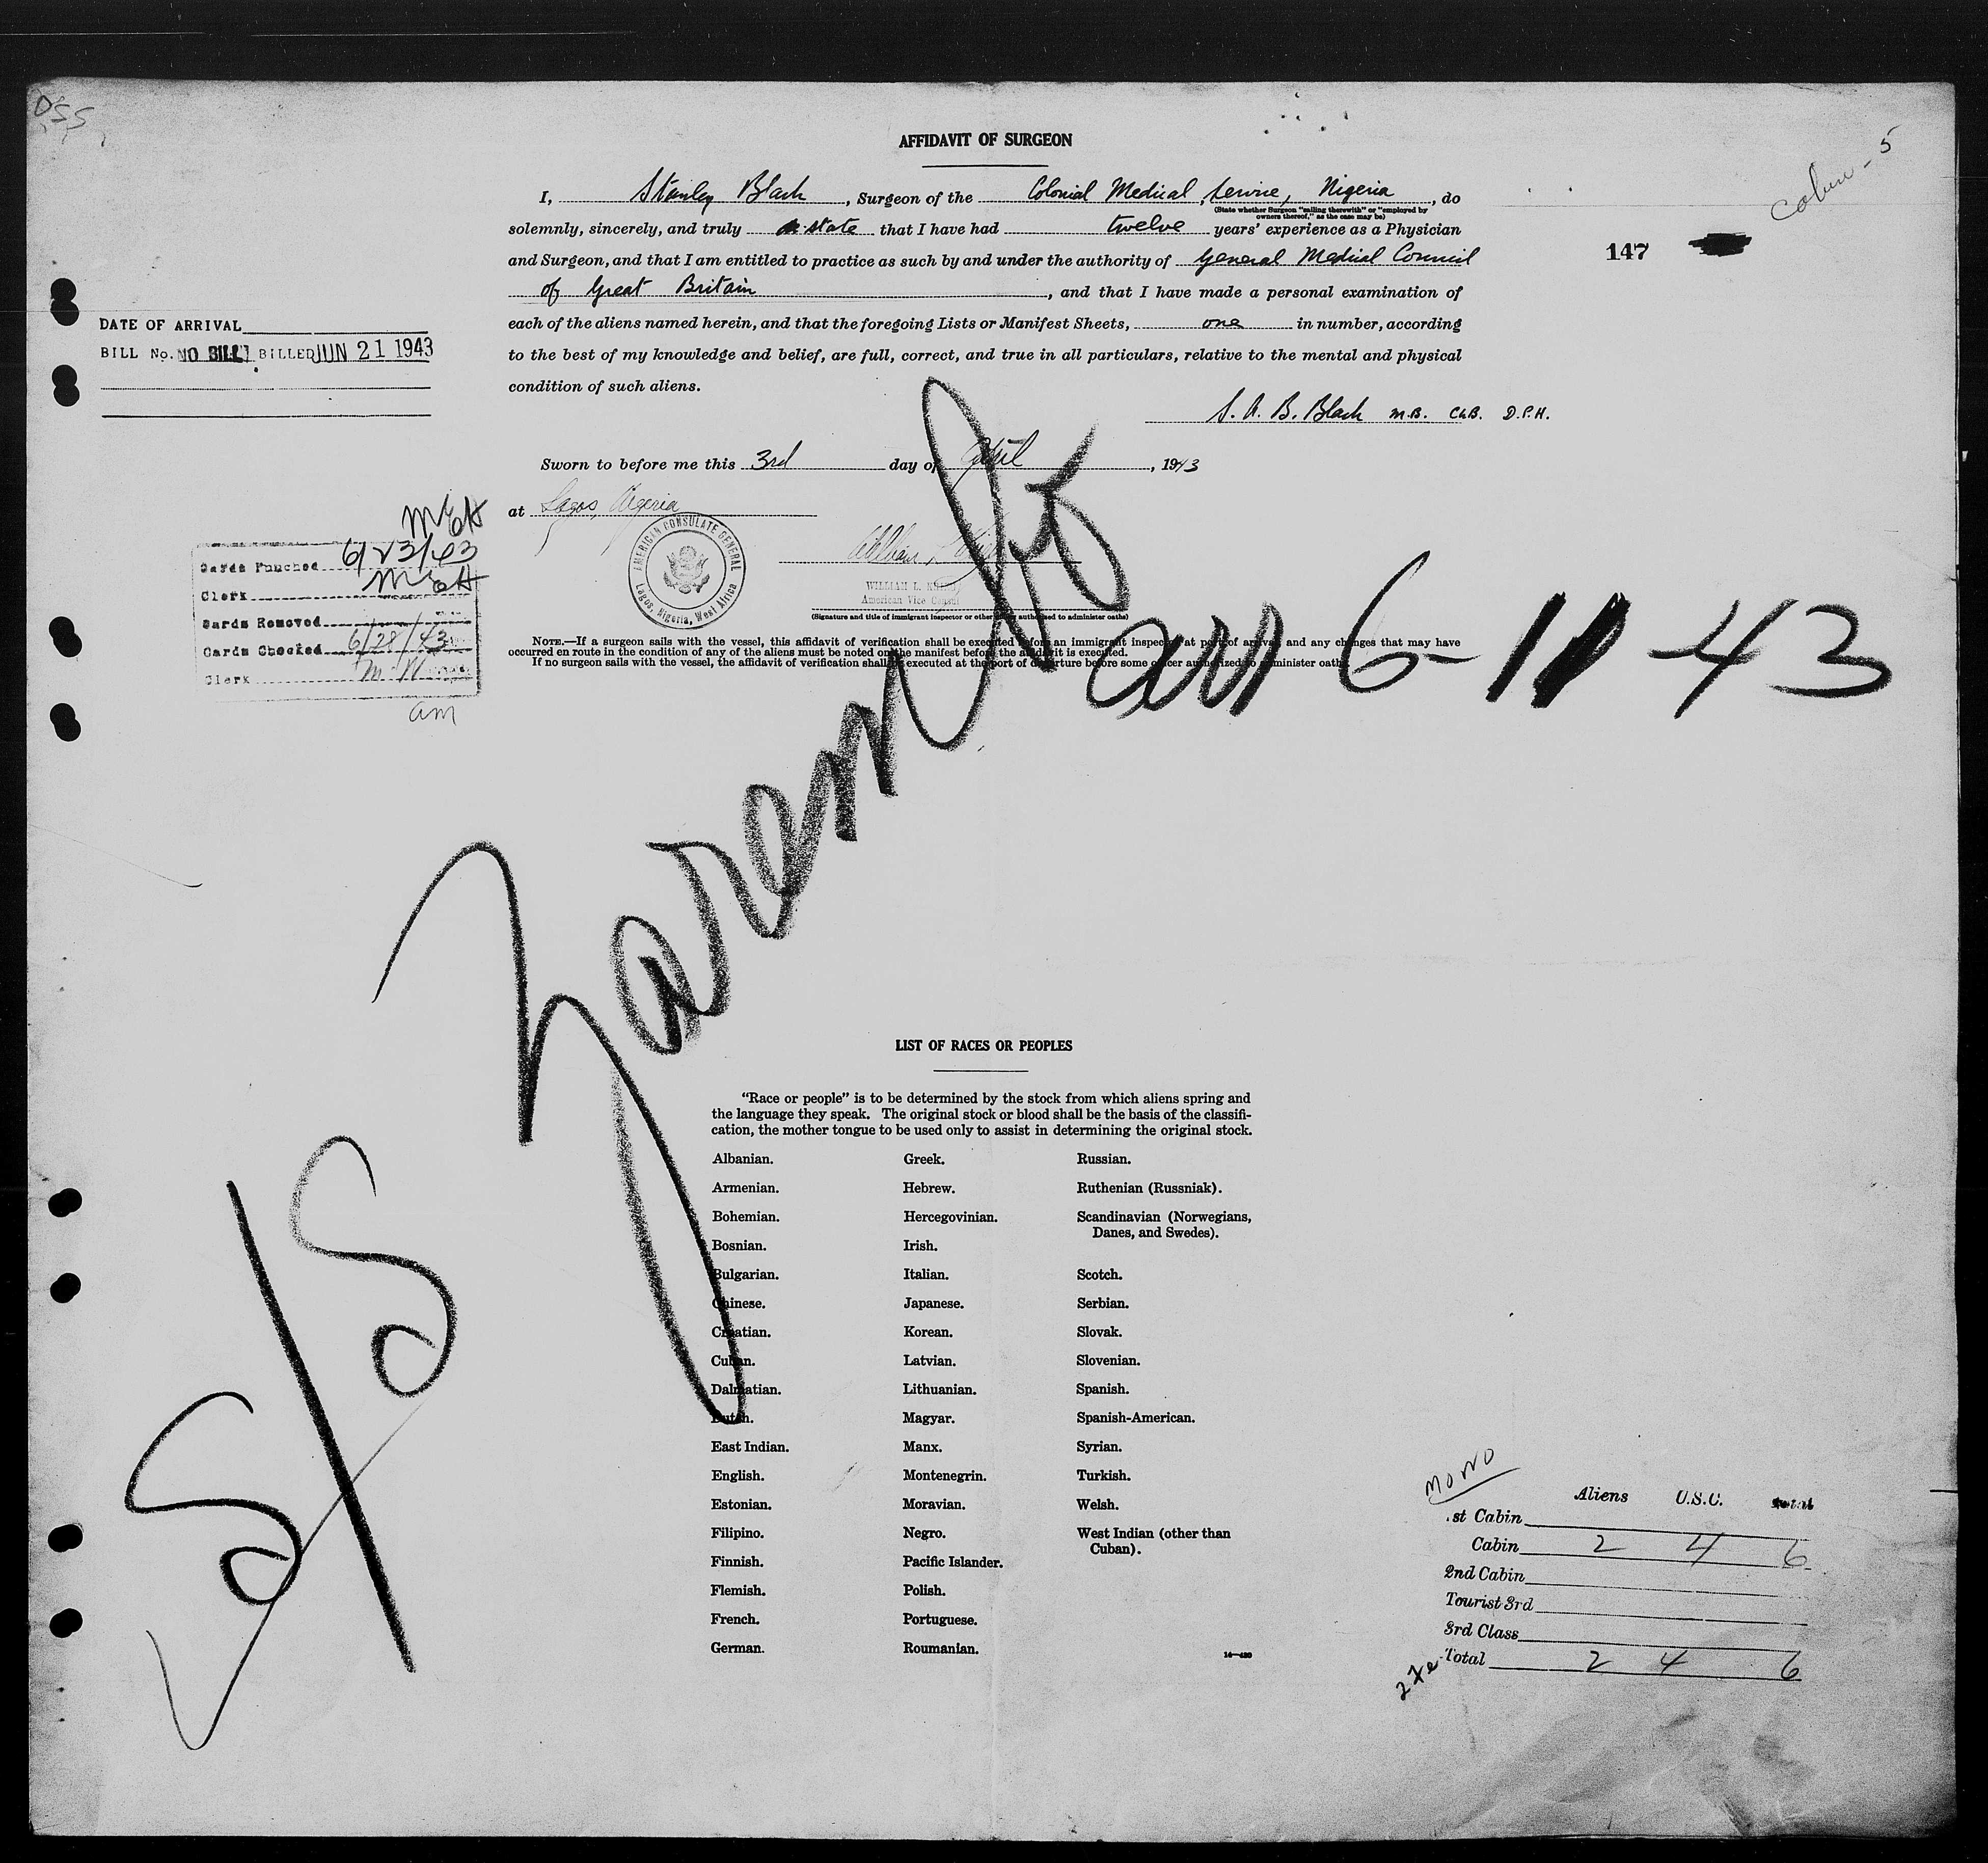 DSS
AFFIDAVIT OF SURGEON
I, Stanley Black, Surgeon of the Colonial Medical Service, Nigeria, do
(State whether Surgeon "sailing therewith" or "employed by
owners thereof," as the case may be)
solemnly, sincerely, and truly state that I have had twelve years' experience as a Physician
and Surgeon, and that I am entitled to practice as such by and under the authority of General Medical Council
of Great Britain, and that I have made a personal examination of
each of the aliens named herein, and that the foregoing Lists or Manifest Sheets, one in number, according
to the best of my knowledge and belief, are full, correct, and true in all particulars, relative to the mental and physical
condition of such aliens.
S. A. B. Black M.B. Ch.B. D.P.H.
Sworn to before me this 3rd day of April, 1943
at Lagos, Nigeria
AMERICAN CONSULATE GENERAL
Lagos, Nigeria, West Africa
WILLIAM L.
American Vice Consul
(Signature and title of immigrant inspector or other officer authorized to administer oaths)
NOTE.—If a surgeon sails with the vessel, this affidavit of verification shall be executed before an immigrant inspector at port of arrival and any changes that may have
occurred en route in the condition of any of the aliens must be noted on the manifest before the affidavit is executed.
If no surgeon sails with the vessel, the affidavit of verification shall be executed at the port of departure before some officer authorized to administer oaths.
147
5
DATE OF ARRIVAL
BILL No. NO BILL BILLED JUN 21 1943
Cards Punched 6/23/43
Clerk
Cards Removed
Cards Checked 6/28/43
Clerk
am
S/S Zarembo
arr 6-11-43
LIST OF RACES OR PEOPLES
"Race or people" is to be determined by the stock from which aliens spring and
the language they speak. The original stock or blood shall be the basis of the classifi-
cation, the mother tongue to be used only to assist in determining the original stock.
Albanian. Greek. Russian.
Armenian. Hebrew. Ruthenian (Russniak).
Bohemian. Hercegovinian. Scandinavian (Norwegians,
Danes, and Swedes).
Bosnian. Irish.
Bulgarian. Italian. Scotch.
Chinese. Japanese. Serbian.
Croatian. Korean. Slovak.
Cuban. Latvian. Slovenian.
Dalmatian. Lithuanian. Spanish.
Dutch. Magyar. Spanish-American.
East Indian. Manx. Syrian.
English. Montenegrin. Turkish.
Estonian. Moravian. Welsh.
Filipino. Negro. West Indian (other than
Cuban).
Finnish. Pacific Islander.
Flemish. Polish.
French. Portuguese.
German. Roumanian.
Aliens U.S.C. total
1st Cabin
Cabin 2 4 6
2nd Cabin
Tourist 3rd
3rd Class
Total 2 4 6